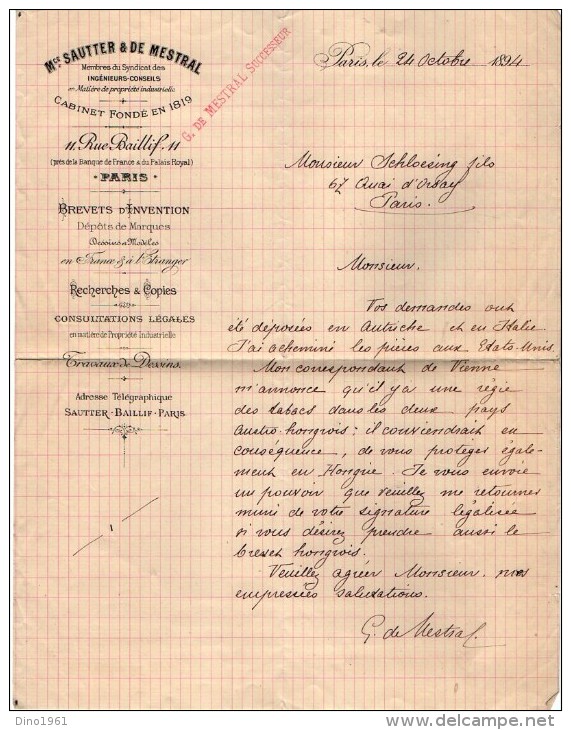 Mce SAUTTER & DE MESTRAL
Membres du Syndicat des
INGÉNIEURS-CONSEILS
en Matière de propriété industrielle
CABINET FONDÉ EN 1819
11, Rue Baillif, 11
(près de la Banque de France & du Palais Royal)
PARIS
BREVETS D'INVENTION
Dépôts de Marques
Dessins et Modèles
en France & à l'Étranger
Recherches & Copies
CONSULTATIONS LÉGALES
en matière de Propriété Industrielle
Travaux de Dessins.
Adresse Télégraphique
SAUTTER-BAILLIF-PARIS
G. DE MESTRAL SUCCESSEUR
Paris, le 24 Octobre 1894
Monsieur Schloesing fils
67 Quai d'Orsay
Paris.
Monsieur.
Vos demandes ont
été déposées en Autriche et en Italie.
J'ai acheminé les pièces aux Etats-Unis.
Mon correspondant de Vienne
m'annonce qu'il y a une régie
des tabacs dans les deux pays
austro-hongrois; il conviendrait en
conséquence, de vous protéger égale-
ment en Hongrie. Je vous envoie
un pouvoir que veuillez me retourner
muni de votre signature légalisée
si vous désirez prendre aussi le
brevet hongrois.
Veuillez agréer Monsieur, mes
empressées salutations.
G. de Mestral
1
Dino1961
delcampe.net